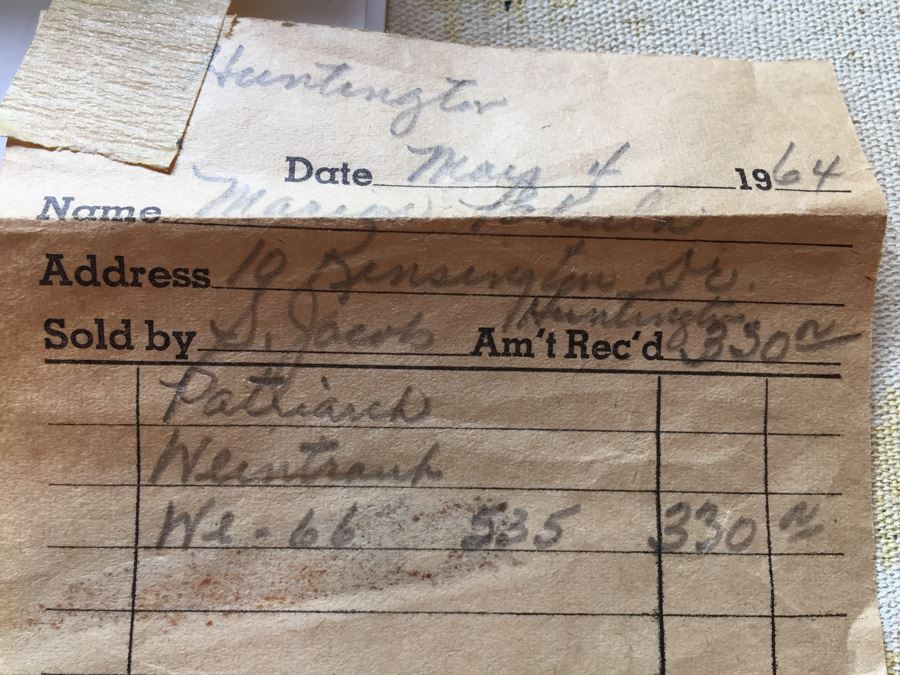 Huntington
Date May 4 1964
Name Marion
Address 10 Kensington Dr.
Huntington
Sold by S. Jacob Am't Rec'd 330
Patriarch
Weintraub
We - 66 535 330